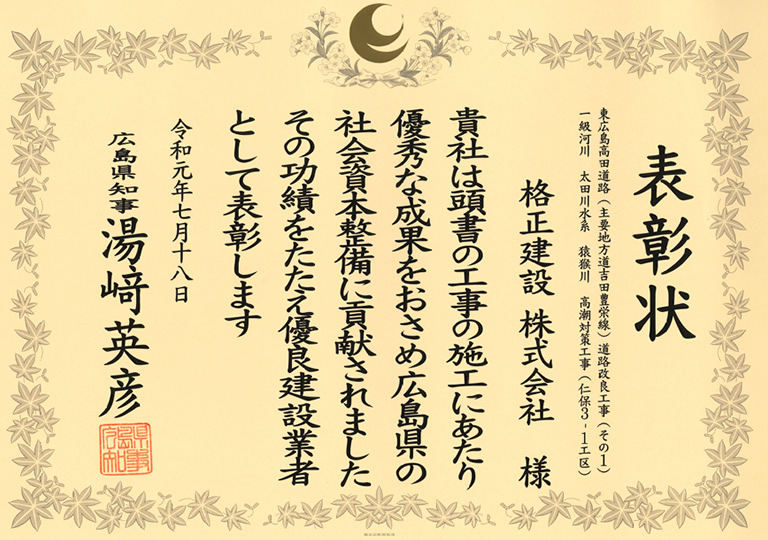 表彰状
東広島高田道路（主要地方道吉田豊栄線）道路改良工事（その1）
一級河川　太田川水系　猿猴川　高潮対策工事（仁保3-1工区）
格正建設　株式会社　様
貴社は頭書の工事の施工にあたり
優秀な成果をおさめ広島県の
社会資本整備に貢献されました
その功績をたたえ優良建設業者
として表彰します
令和元年七月十八日
広島県知事　湯﨑英彦